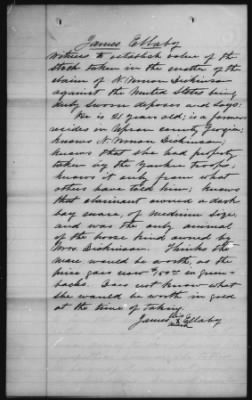 James Ellaby
witness to establish value of the
stock taken in the matter of the
claim of N. Dickinson
against the United States being
duly sworn deposes and says:
He is 21 years old; is a farmer
resides in county Georgia
knows N. Dickinson
knows that she had property
taken by the Yankee troops,
knows it only from what
others have told him; knows
that claimant owned a dark
bay mare, of medium size,
and was the only animal
of the horse kind owned by
Mrs. Dickinson. Thinks the
mare would be worth, as the
price goes now in green-
backs. Does not know what
she would be worth in gold
at the time of taking.
James his X mark Ellaby